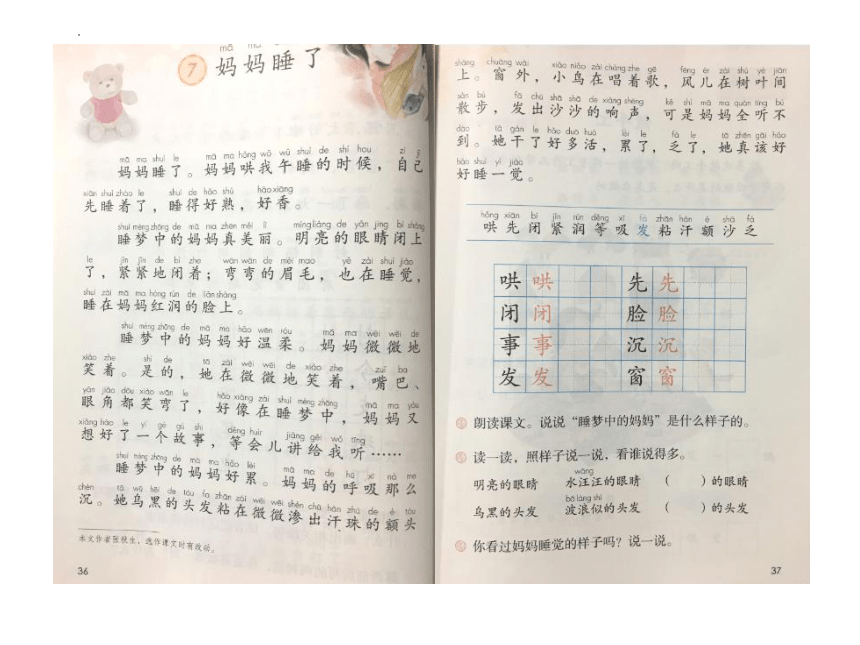 mā ma shuì le
7 妈妈睡了
mā ma shuì le mā ma hǒng wǒ wǔ shuì de shí hou zì jǐ
妈妈睡了。妈妈哄我午睡的时候，自己
xiān shuì zháo le shuì de hǎo shú hǎo xiāng
先睡着了，睡得好熟，好香。
shuì mèng zhōng de mā ma zhēn měi lì míng liàng de yǎn jing bì shàng
睡梦中的妈妈真美丽。明亮的眼睛闭上
le jǐn jǐn de bì zhe wān wān de méi mao yě zài shuì jiào
了，紧紧地闭着；弯弯的眉毛，也在睡觉，
shuì zài mā ma hóng rùn de liǎn shàng
睡在妈妈红润的脸上。
shuì mèng zhōng de mā ma hǎo wēn róu mā ma wēi wēi de
睡梦中的妈妈好温柔。妈妈微微地
xiào zhe shì de tā zài wēi wēi de xiào zhe zuǐ ba
笑着。是的，她在微微地笑着，嘴巴、
yǎn jiǎo dōu xiào wān le hǎo xiàng zài shuì mèng zhōng mā ma yòu
眼角都笑弯了，好像在睡梦中，妈妈又
xiǎng hǎo le yí gè gù shi děng huìr jiǎng gěi wǒ tīng
想好了一个故事，等会儿讲给我听……
shuì mèng zhōng de mā ma hǎo lèi mā ma de hū xī nà me
睡梦中的妈妈好累。妈妈的呼吸那么
chén tā wū hēi de tóu fa zhān zài wēi wēi shèn chū hàn zhū de é tóu
沉。她乌黑的头发粘在微微渗出汗珠的额头
本文作者张秋生，选作课文时有改动。
36
shàng chuāng wài xiǎo niǎo zài chàng zhe gē fēng ér zài shù yè jiān
上。窗外，小鸟在唱着歌，风儿在树叶间
sàn bù fā chū shā shā de xiǎng shēng kě shì mā ma quán tīng bú
散步，发出沙沙的响声，可是妈妈全听不
dào tā gàn le hǎo duō huó lèi le fá le tā zhēn gāi hǎo
到。她干了好多活，累了，乏了，她真该好
hǎo shuì yí jiào
好睡一觉。
hǒng xiān bì jǐn rùn děng xī fà zhān hàn é shā fá
哄先闭紧润等吸发粘汗额沙乏
哄 哄 先 先
闭 闭 脸 脸
事 事 沉 沉
发 发 窗 窗
朗读课文。说说“睡梦中的妈妈”是什么样子的。
读一读，照样子说一说，看谁说得多。
wāng
明亮的眼睛 水汪汪的眼睛 （ ）的眼睛
bō làng shì
乌黑的头发 波浪似的头发 （ ）的头发
你看过妈妈睡觉的样子吗？说一说。
37